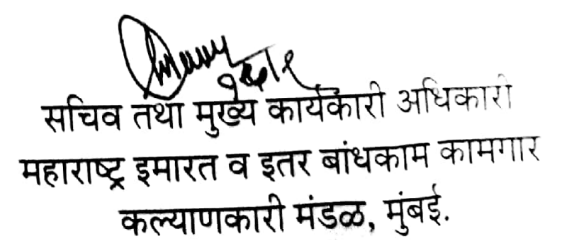 सचिव तथा मुख्य कार्यकारी अधिकारी
महाराष्ट्र इमारत व इतर बांधकाम कामगार
कल्याणकारी मंडळ, मुंबई.